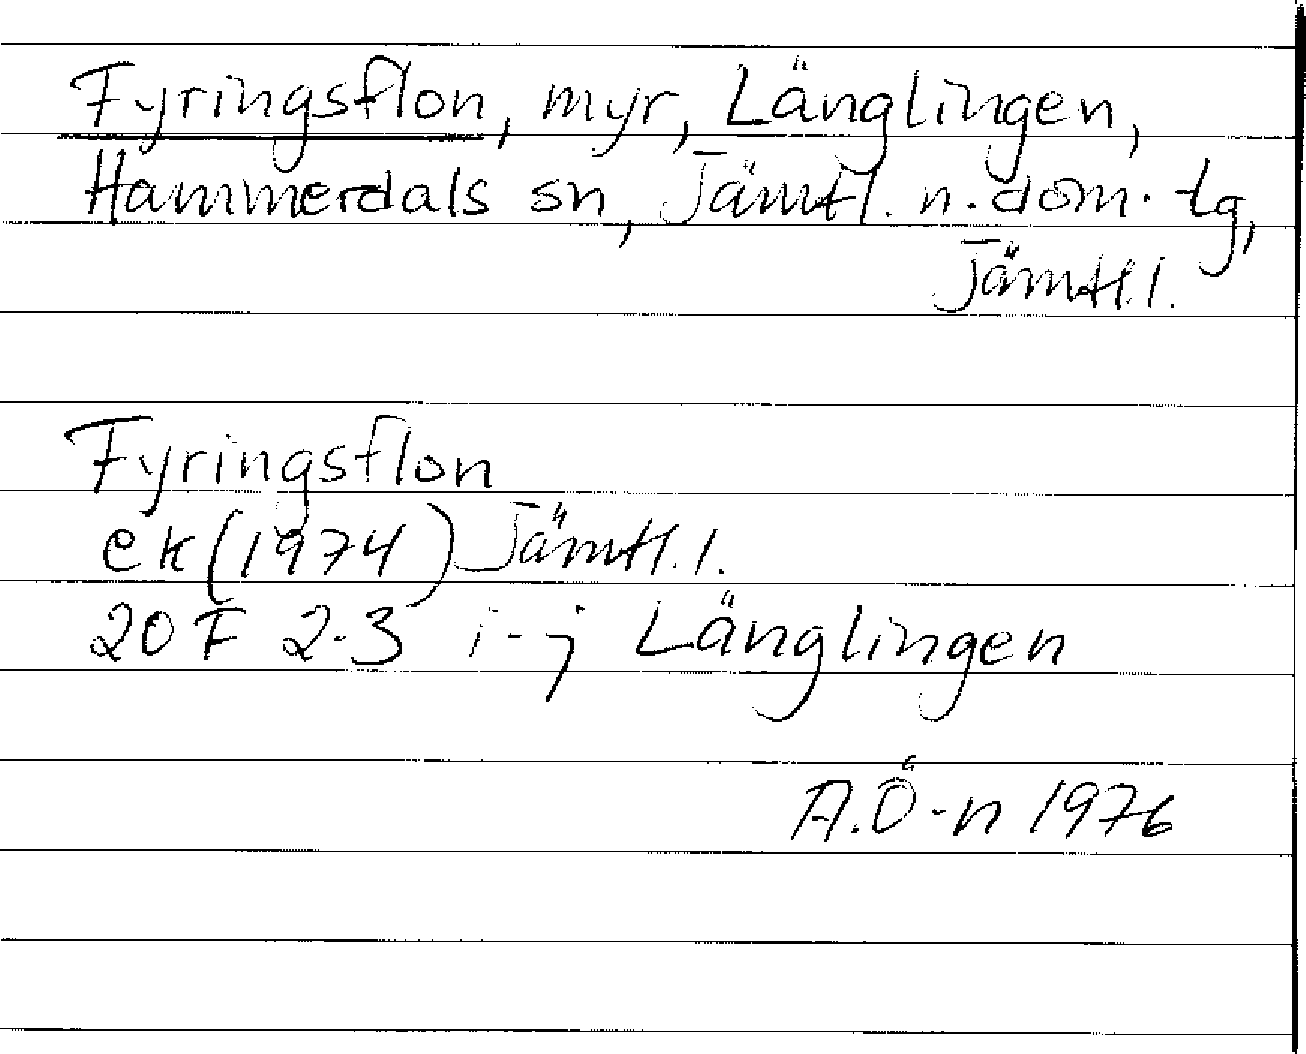 Fyringsflon, myr, Länglingen,
Hammerdals sn, Jämtl. n. dom. tg,
Jämtl. l.
Fyringsflon
ek (1974) Jämtl. l.
20 F 2-3 i-j Länglingen
A.Ö-n 1976